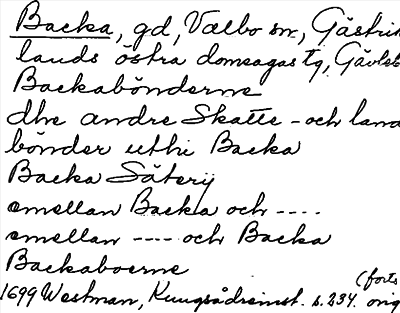 Backa, gd, Valbo sn, Gästrik
lands östra domsagas tg, Gävleb
Backabönderne
dhe andre Skatte - och land
bönder uthi Backa
Backa Säterij
emellan Backa och ----
emellan ---- och Backa
Backaboerne
(forts
1699 Westman, Kungsådreinst. s. 234. orig